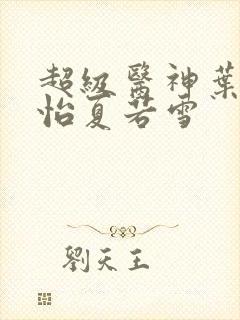 超級醫神葉
怡夏若雪
劉天王